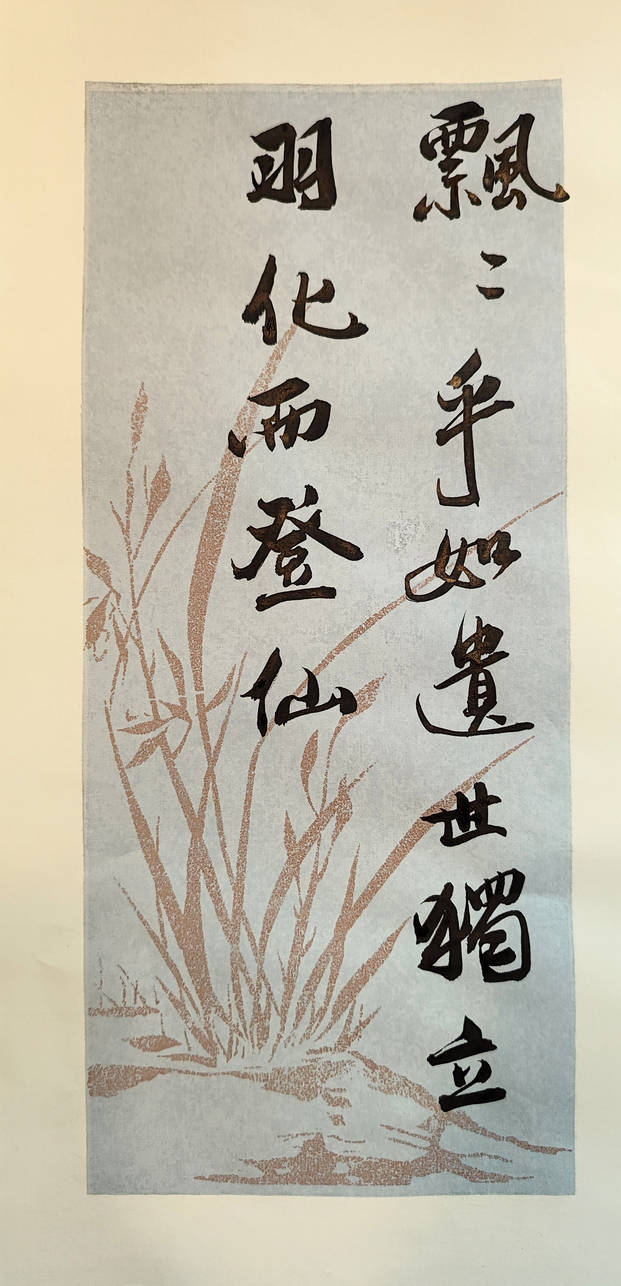 飄〻乎如遺世獨立
羽化而登仙